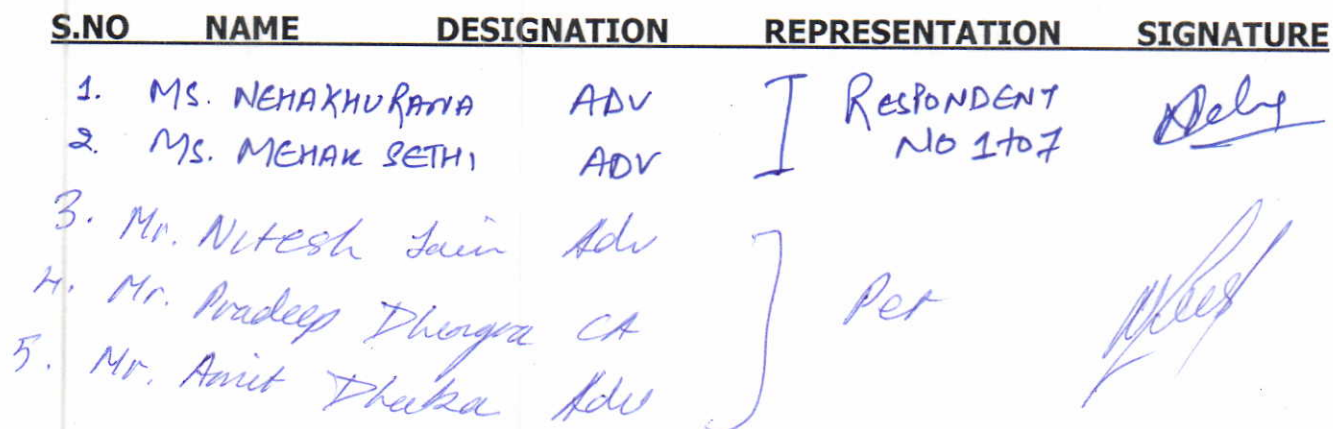 S.NO NAME DESIGNATION REPRESENTATION SIGNATURE
1. MS. NEHA KHURANA ADV RESPONDENT
2. MS. MEHAK SETHI ADV NO 1 to 7
3. Mr. Nitesh Jain Adv
4. Mr. Pradeep Dhingra CA Pet
5. Mr. Amit Dhaka Adv